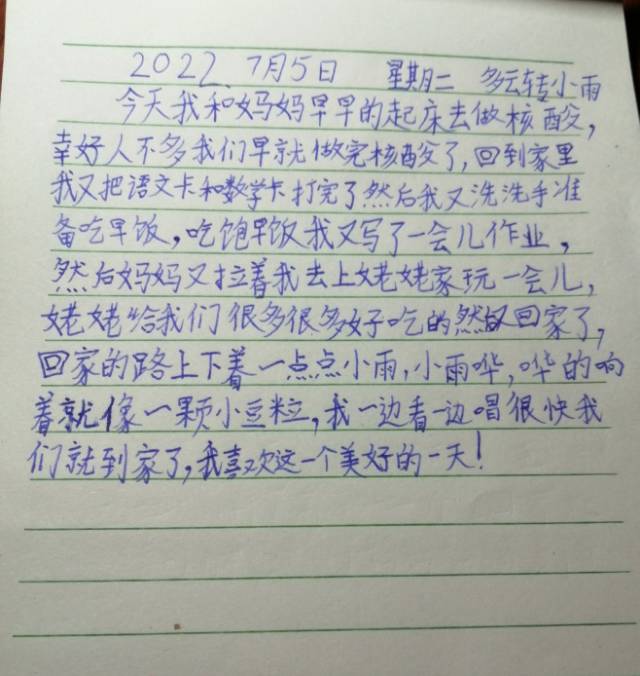 2022 7月5日 星期二 多云转小雨
今天我和妈妈早早的起床去做核酸,
幸好人不多我们早就做完核酸了,回到家里
我又把语文卡和数学卡打完了然后我又洗洗手准
备吃早饭,吃饱早饭我又写了一会儿作业,
然后妈妈又拉着我去上姥姥家玩一会儿,
姥姥给我们很多很多好吃的然后又回家了,
回家的路上下着一点点小雨,小雨哗,哗的响
着就像一颗小豆粒,我一边看一边唱很快我
们就到家了,我喜欢这一个美好的一天!